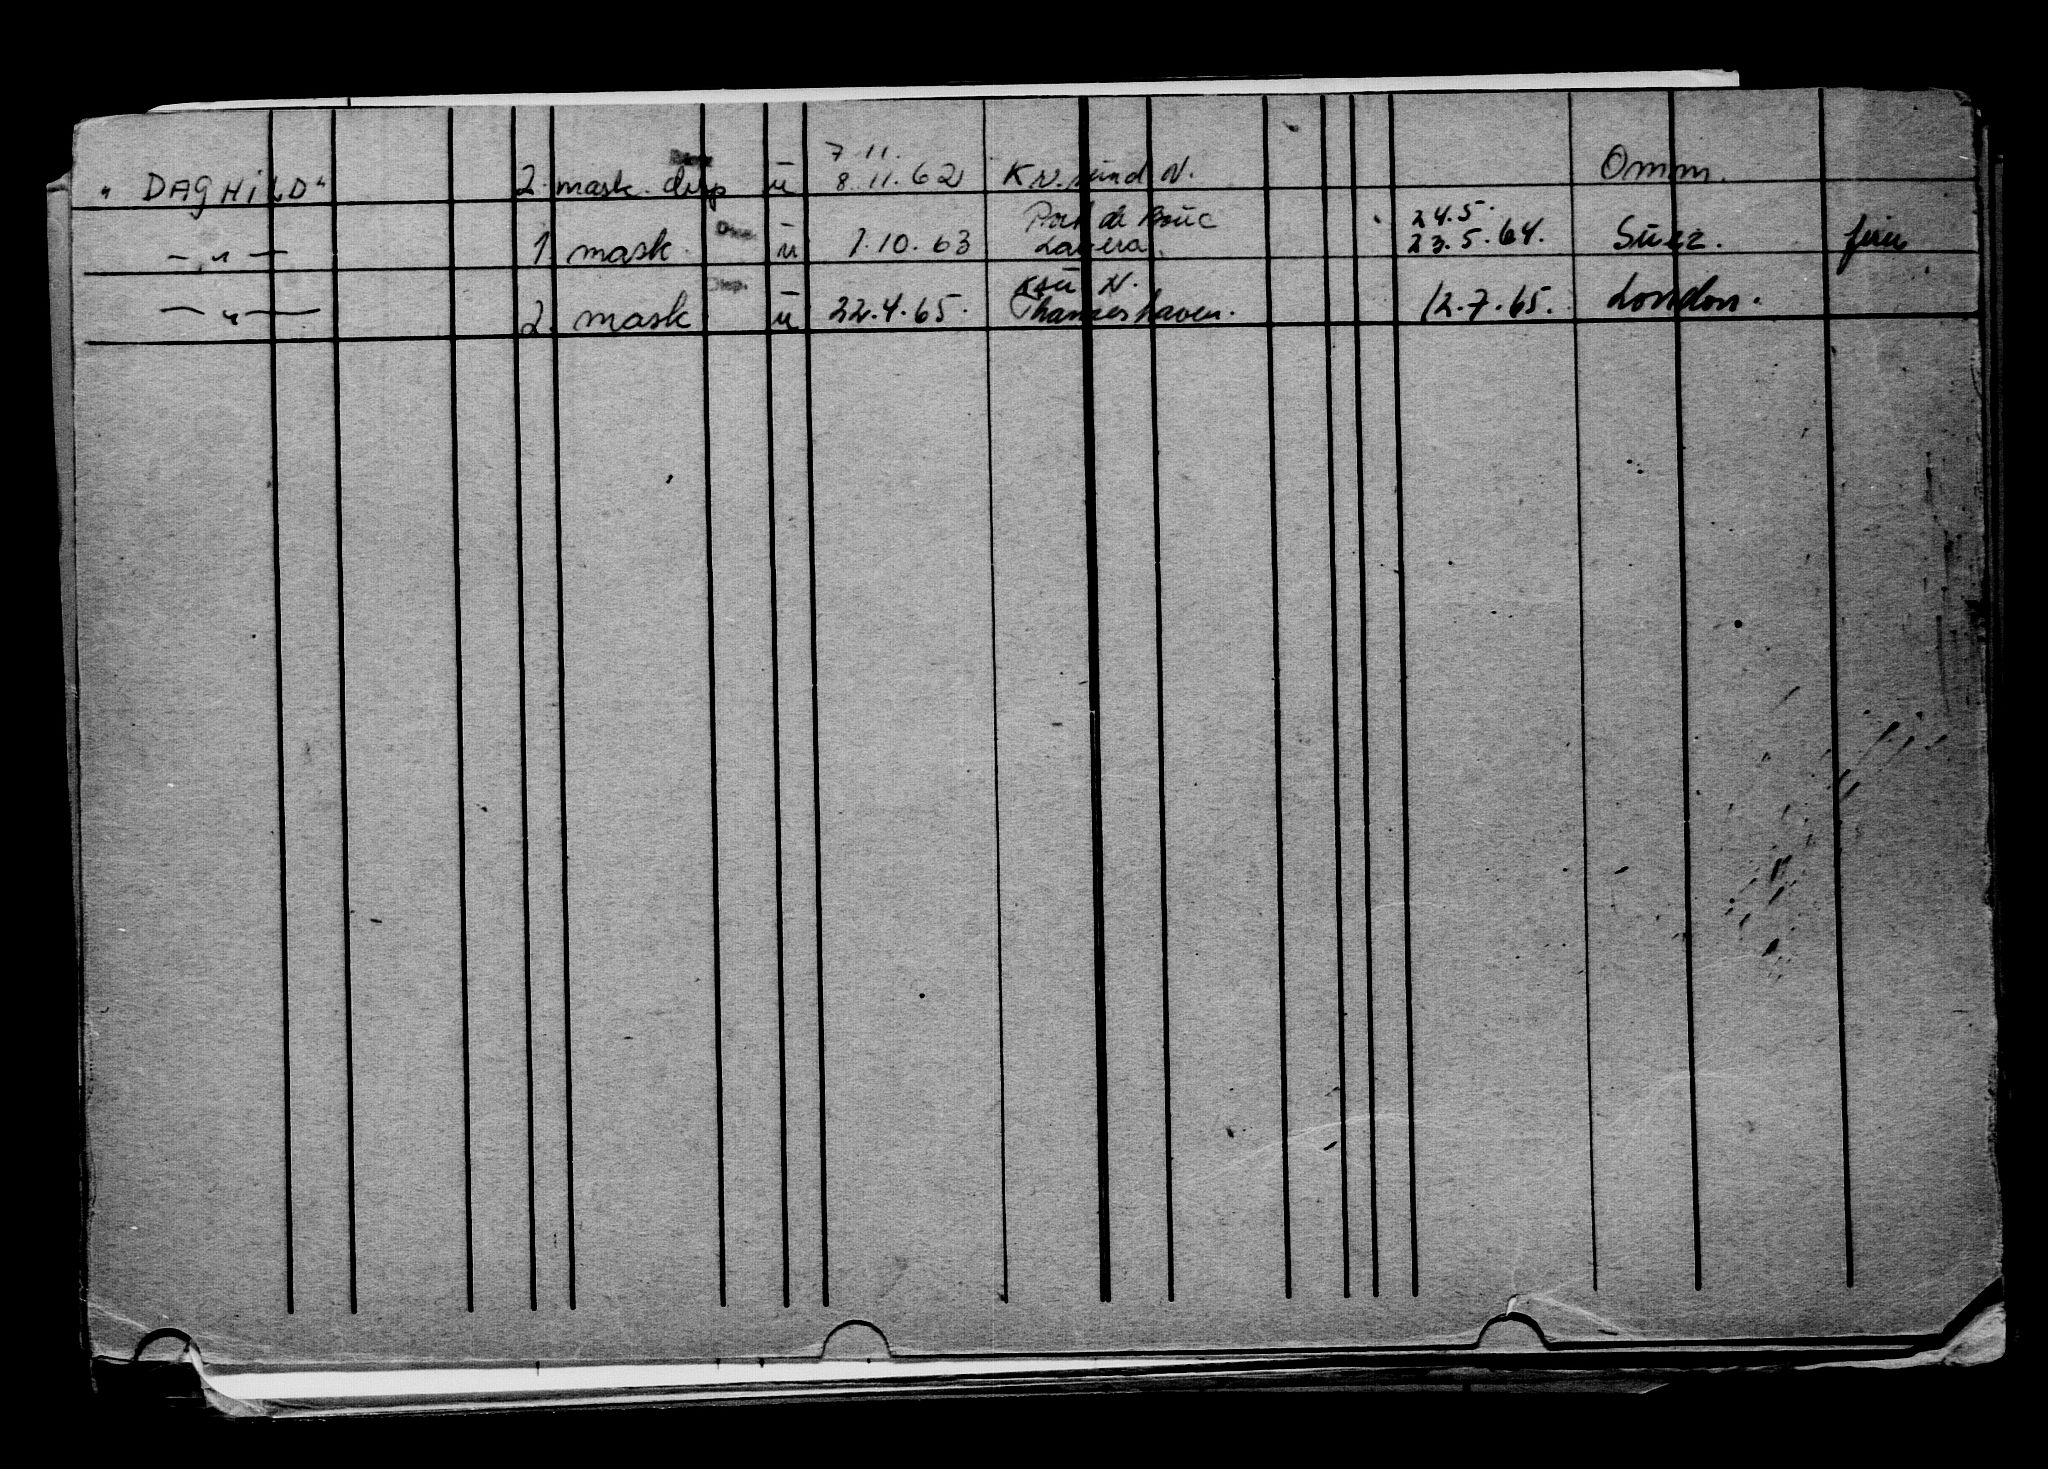 7 11.
" DAGHILD " 2. mask. disp ū 8.11.62 Kr.sund N. Omm.
Port de Bouc 24.5.
— " — 1 mask. Disp. ū 1.10.63 Lavera. 23.5.64. Suez.
Disp. Ksū N.
— " — 2. mask ū 22.4.65. Thameshaven. 12.7.65. London.